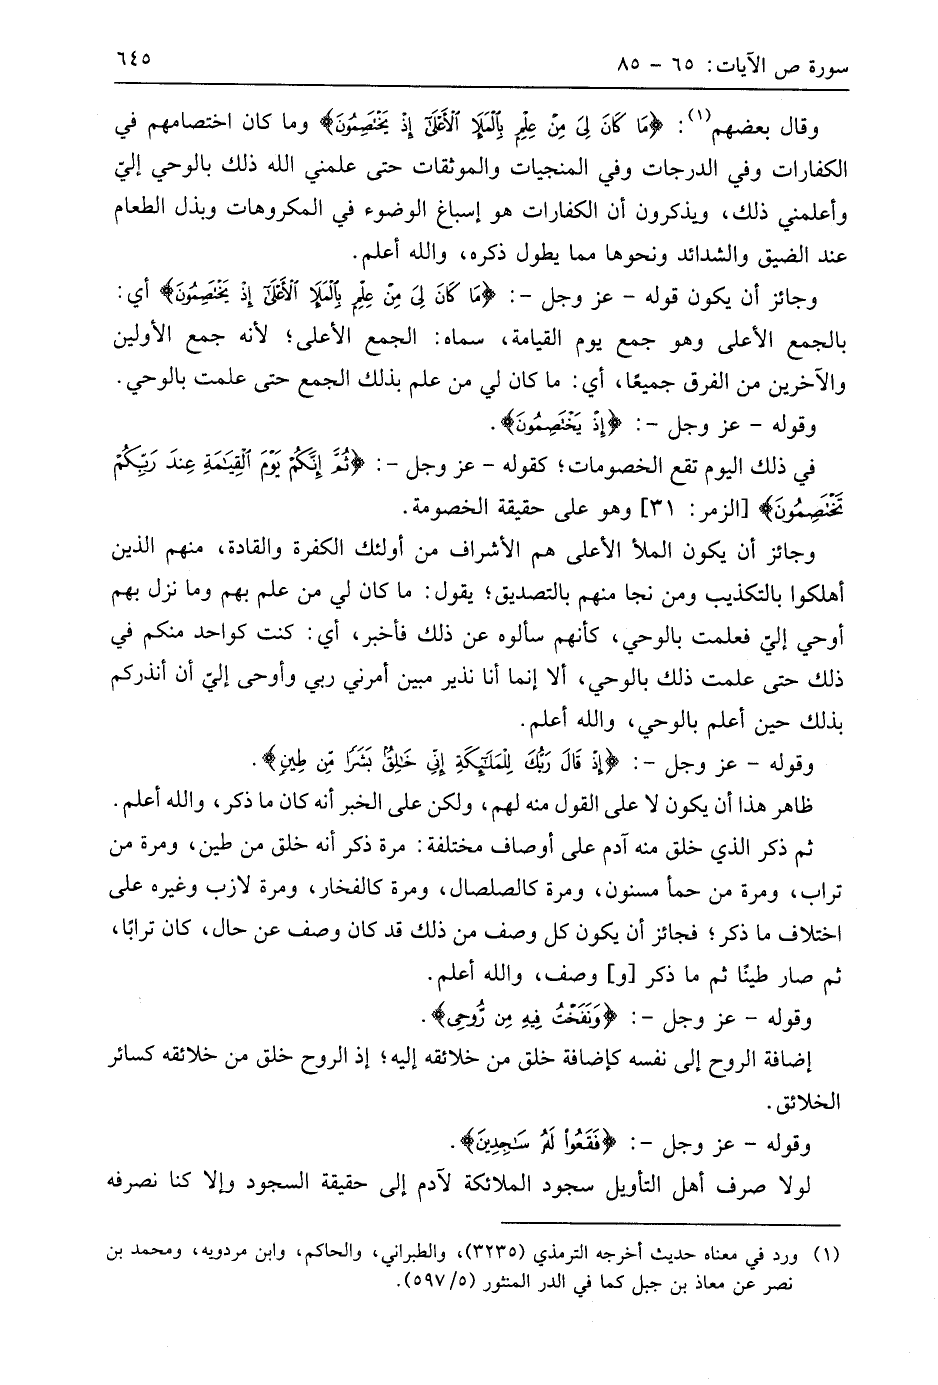 سورة ص الآيات: ٦٥ - ٨٥ ٦٤٥
وقال بعضهم(١): ﴿مَا كَانَ لِيَ مِنْ عِلْمٍ بِالْمَلَإِ الْأَعْلَىٰ إِذْ يَخْتَصِمُونَ﴾ وما كان اختصامهم في
الكفارات وفي الدرجات وفي المنجيات والموثقات حتى علمني الله ذلك بالوحي إليّ
وأعلمني ذلك، ويذكرون أن الكفارات هو إسباغ الوضوء في المكروهات وبذل الطعام
عند الضيق والشدائد ونحوها مما يطول ذكره، والله أعلم.
وجائز أن يكون قوله - عز وجل -: ﴿مَا كَانَ لِيَ مِنْ عِلْمٍ بِالْمَلَإِ الْأَعْلَىٰ إِذْ يَخْتَصِمُونَ﴾ أي:
بالجمع الأعلى وهو جمع يوم القيامة، سماه: الجمع الأعلى؛ لأنه جمع الأولين
والآخرين من الفرق جميعًا، أي: ما كان لي من علم بذلك الجمع حتى علمت بالوحي.
وقوله - عز وجل -: ﴿إِذْ يَخْتَصِمُونَ﴾.
في ذلك اليوم تقع الخصومات؛ كقوله - عز وجل -: ﴿ثُمَّ إِنَّكُمْ يَوْمَ الْقِيَامَةِ عِندَ رَبِّكُمْ
تَخْتَصِمُونَ﴾ [الزمر: ٣١] وهو على حقيقة الخصومة.
وجائز أن يكون الملأ الأعلى هم الأشراف من أولئك الكفرة والقادة، منهم الذين
أهلكوا بالتكذيب ومن نجا منهم بالتصديق؛ يقول: ما كان لي من علم بهم وما نزل بهم
أوحي إليّ فعلمت بالوحي، كأنهم سألوه عن ذلك فأخبر، أي: كنت كواحد منكم في
ذلك حتى علمت ذلك بالوحي، ألا إنما أنا نذير مبين أمرني ربي وأوحى إليّ أن أنذركم
بذلك حين أعلم بالوحي، والله أعلم.
وقوله - عز وجل -: ﴿إِذْ قَالَ رَبُّكَ لِلْمَلَائِكَةِ إِنِّي خَالِقٌ بَشَرًا مِّن طِينٍ﴾.
ظاهر هذا أن يكون لا على القول منه لهم، ولكن على الخبر أنه كان ما ذكر، والله أعلم.
ثم ذكر الذي خلق منه آدم على أوصاف مختلفة: مرة ذكر أنه خلق من طين، ومرة من
تراب، ومرة من حمأ مسنون، ومرة كالصلصال، ومرة كالفخار، ومرة لازب وغيره على
اختلاف ما ذكر؛ فجائز أن يكون كل وصف من ذلك قد كان وصف عن حال، كان ترابًا،
ثم صار طينًا ثم ما ذكر [و] وصف، والله أعلم.
وقوله - عز وجل -: ﴿وَنَفَخْتُ فِيهِ مِن رُّوحِي﴾.
إضافة الروح إلى نفسه كإضافة خلق من خلائقه إليه؛ إذ الروح خلق من خلائقه كسائر
الخلائق.
وقوله - عز وجل -: ﴿فَقَعُوا لَهُ سَاجِدِينَ﴾.
لولا صرف أهل التأويل سجود الملائكة لآدم إلى حقيقة السجود وإلا كنا نصرفه
(١) ورد في معناه حديث أخرجه الترمذي (٣٢٣٥)، والطبراني، والحاكم، وابن مردويه، ومحمد بن
نصر عن معاذ بن جبل كما في الدر المنثور (٥/ ٥٩٧).